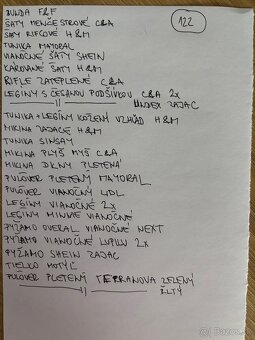 BUNDA F&F
122
ŠATY MENČESTROVÉ C&A
ŠATY RIFĽOVÉ H&M
TUNIKA MAYORAL
VIANOČNÉ ŠATY SHEIN
KAROVANÉ ŠATY H&M
RIFLE ZATEPLENÉ C&A
LEGÍNY S ČESANOU PODŠÍVKOU C&A 2x
—— || —— ZAJAC
TUNIKA + LEGÍNY KOŽENÍ VZHĽAD H&M
MIKINA ZAJACE H&M
TUNIKA SINSAY
MIKINA PLYŠ MYŠ C&A
MIKINA DKNY PLETENÁ
PULÓVER PLETENÝ MAYORAL
PULÓVER VIANOČNÝ LIDL
LEGÍNY VIANOČNÉ 2x
LEGÍNY MINNIE VIANOČNÉ
PYŽAMO OVERAL VIANOČNÉ NEXT
PYŽAMO VIANOČNÉ LUPILU 2x
PYŽAMO SHEIN ZAJAC
TIELKO MOTÝĽ
PULOVER PLETENÝ TERRANOVA ZELENÝ
—— || —— ŽLTÝ
bazos.sk